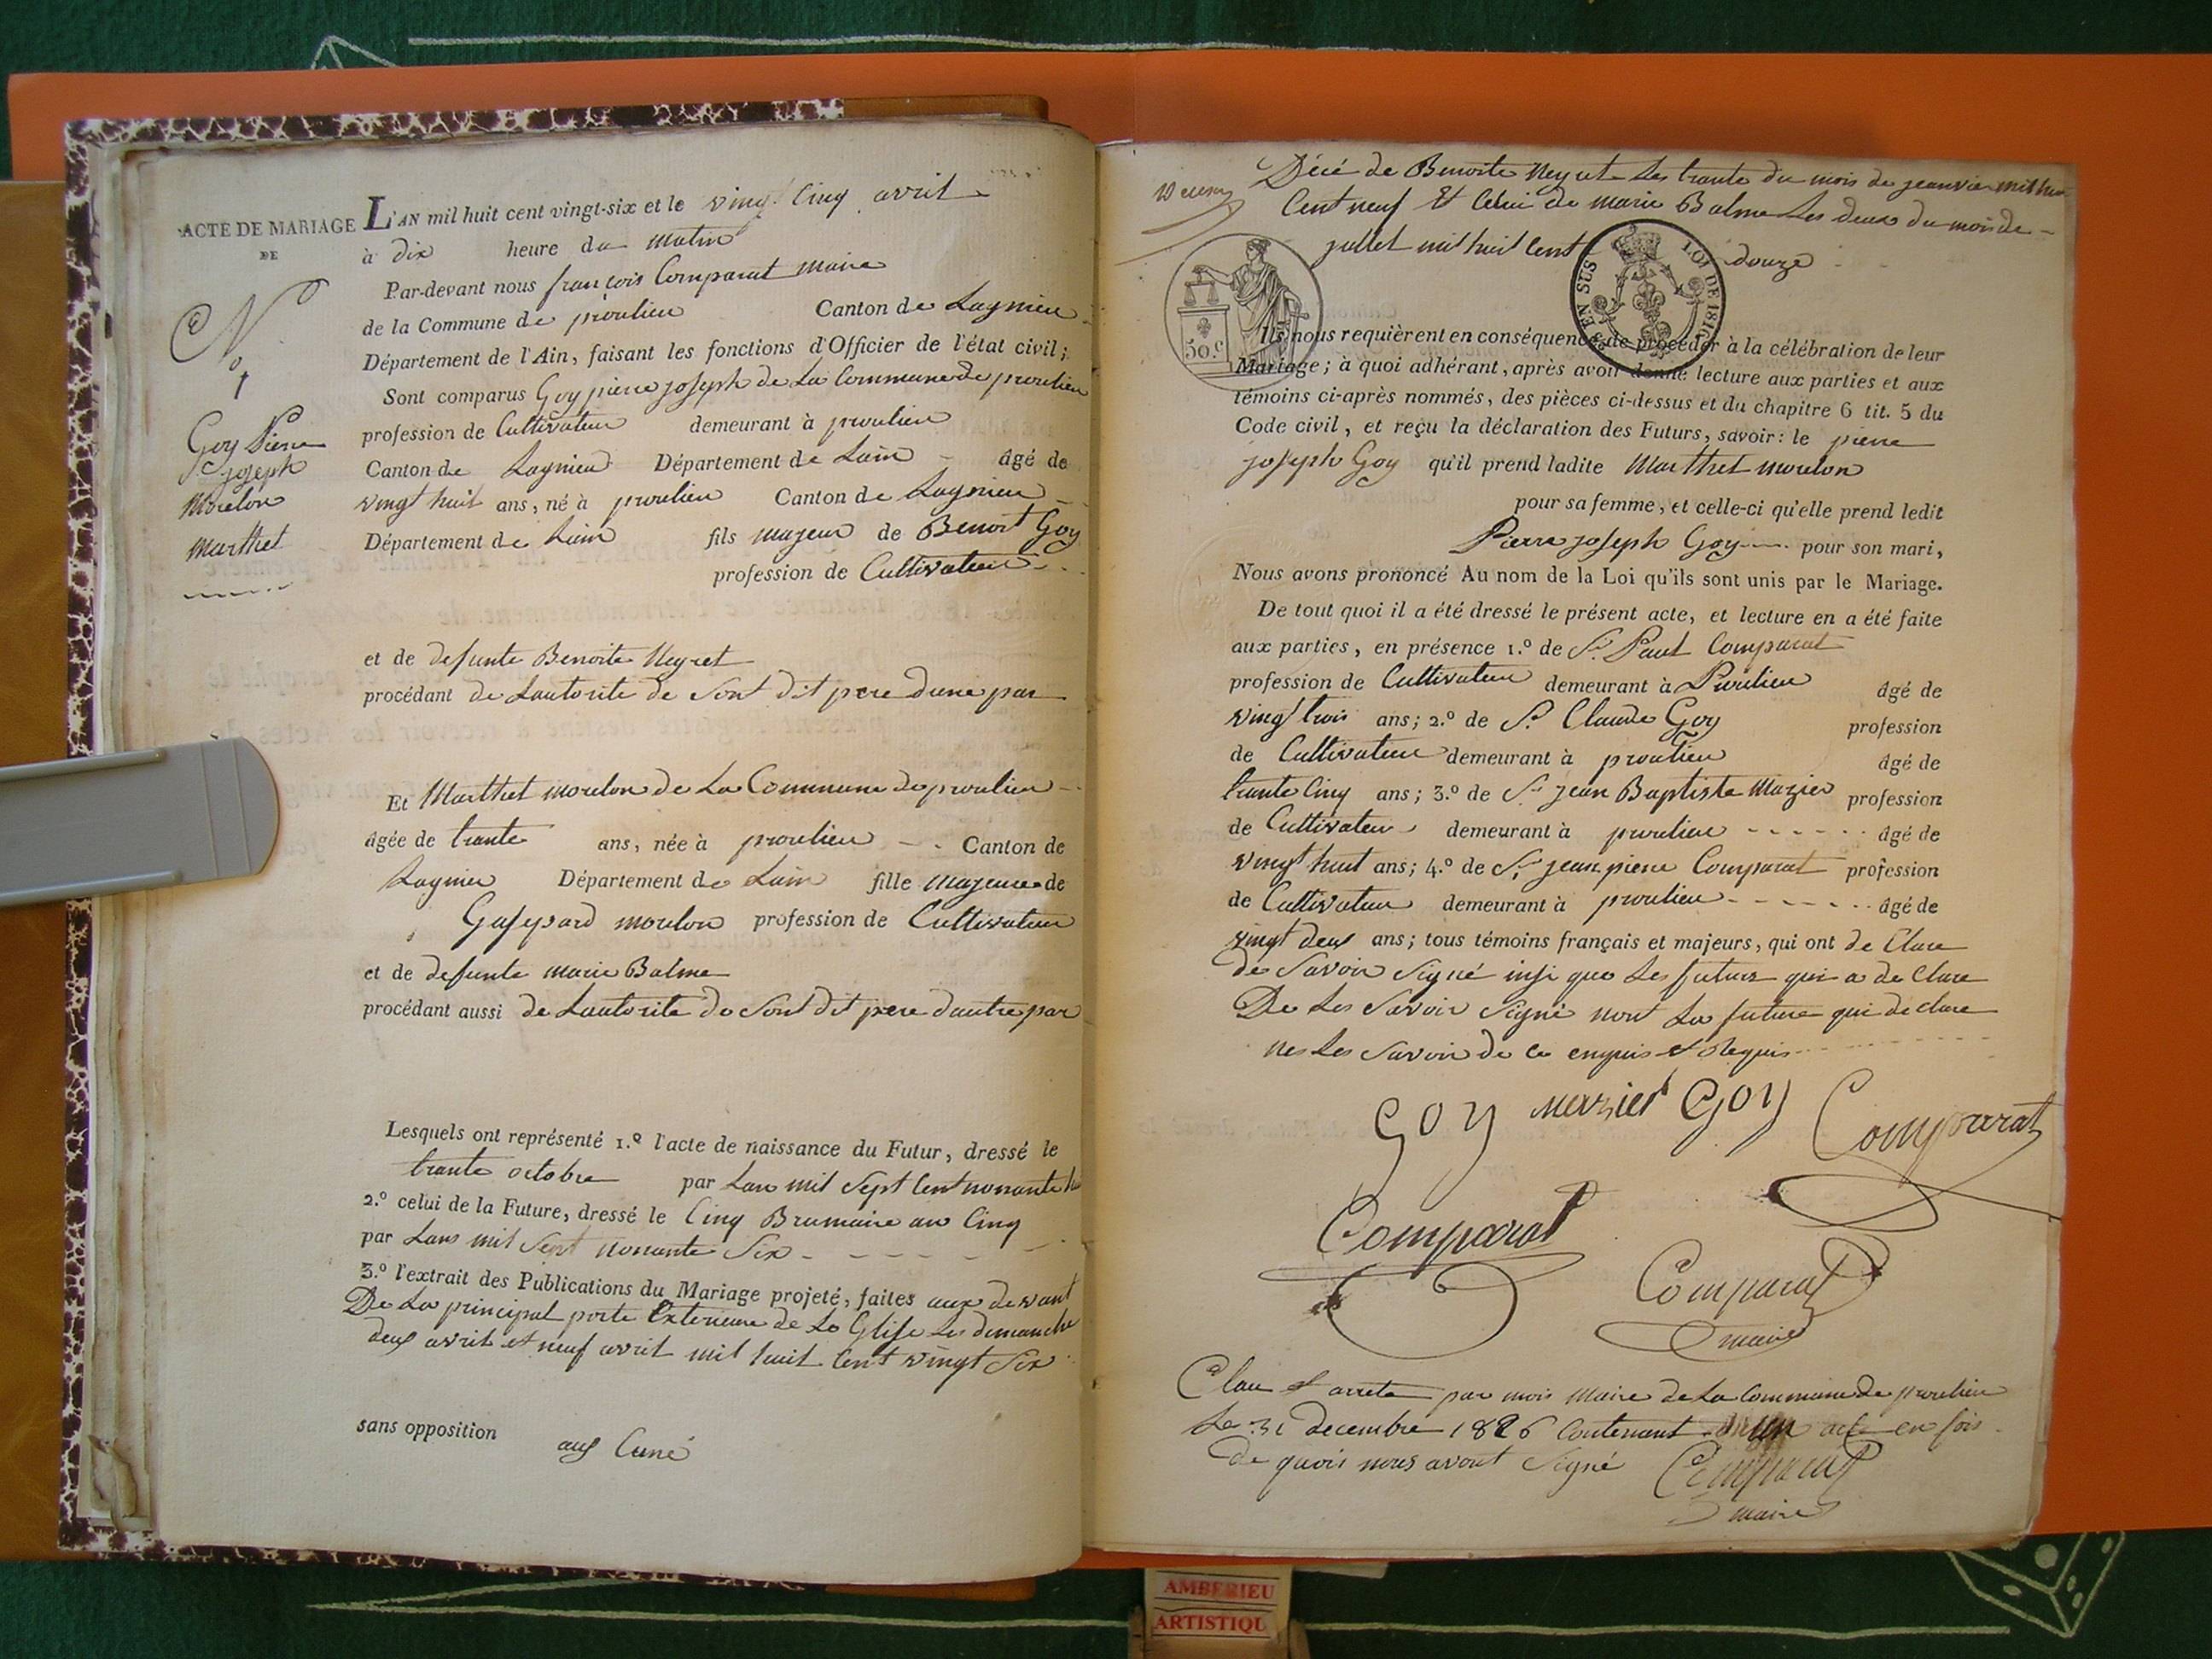 ACTE DE MARIAGE
DE
N
o
1
Goy Pierre
joseph
Moulon
Marthet
L'AN mil huit cent vingt-six et le vingt Cinq avril
à dix heure du Matin
Par-devant nous françois Comparat Maire
de la Commune de proulieu Canton de Lagnieu
Département de l'Ain, faisant les fonctions d'Officier de l'état civil;
Sont comparus Goy pierre joseph de La Commune de proulieu
profession de Cultivateur demeurant à proulieu
Canton de Lagnieu Département de Lain âgé de
vingt huit ans, né à proulieu Canton de Lagnieu
Département de Lain fils majeur de Benoit Goy
profession de Cultivateur
et de defunte Benoite Neyret
procédant de Lautorite de Sont dit pere dune par
Et Marthet moulon de La Commune de proulieu
âgée de trante ans, née à proulieu Canton de
Lagnieu Département de Lain fille Majeure de
Gaspard moulon profession de Cultivateur
et de defunte marie Balme
procédant aussi de Lautorite de Sont dit pere dautre par
Lesquels ont représenté 1.º l'acte de naissance du Futur, dressé le
trante octobre par Lan mil Sept Cent nonante
2.º celui de la Future, dressé le Cinq Brumaire an Cinq
par Lans mil Sept nonante Six
3.º l'extrait des Publications du Mariage projeté, faites aux devant
De La principal porte Exterieure de Lo Glise Les dimanche
deux avril et neuf avril mil huit Cent vingt Six
sans opposition
Décé de Benoite Neyret Les trante du mois de jeanvier mil hui
Cent neuf Et Celui de marie Balme Les deux du mois de
jullet mil huit Cent douze
50.C
EN SUS LOI DE 1816
Ils nous requièrent en conséquence de procéder à la célébration de leur
Mariage; à quoi adhérant, après avoir donné lecture aux parties et aux
témoins ci-après nommés, des pièces ci-dessus et du chapitre 6 tit. 5 du
Code civil, et reçu la déclaration des Futurs, savoir: le pierre
joseph Goy qu'il prend ladite Marthet moulon
pour sa femme, et celle-ci qu'elle prend ledit
Pierre joseph Goy pour son mari,
Nous avons prononcé Au nom de la Loi qu'ils sont unis par le Mariage.
De tout quoi il a été dressé le présent acte, et lecture en a été faite
aux parties, en présence 1.º de Sr. Paul Comparat
profession de Cultivateur demeurant à Proulieu âgé de
vingt trois ans; 2.º de Sr. Claude Goy profession
de Cultivateur demeurant à proulieu âgé de
trante Cinq ans; 3.º de Sr jean Baptiste Mazier profession
de Cultivateur demeurant à proulieu âgé de
vingt huit ans; 4.º de Sr jean pierre Comparat profession
de Cultivateur demeurant à proulieu âgé de
vingt deux ans; tous témoins français et majeurs, qui ont de Clare
de Savoir Signé insi que Les futur qui a de Clare
De Les Savoir Signé nont La future qui declare
nes Les Savoir de ce enquis et Requis
Goy merzier Goy Comparat
Comparat
Comparat
maire
Clau et arrete par mois Maire de La Commune de proulieu
Le 31 decembre 1826 Contenant un acte en fois
de quois nous avont Signé Comparat
maire
AMBERIEU
ARTISTIQU